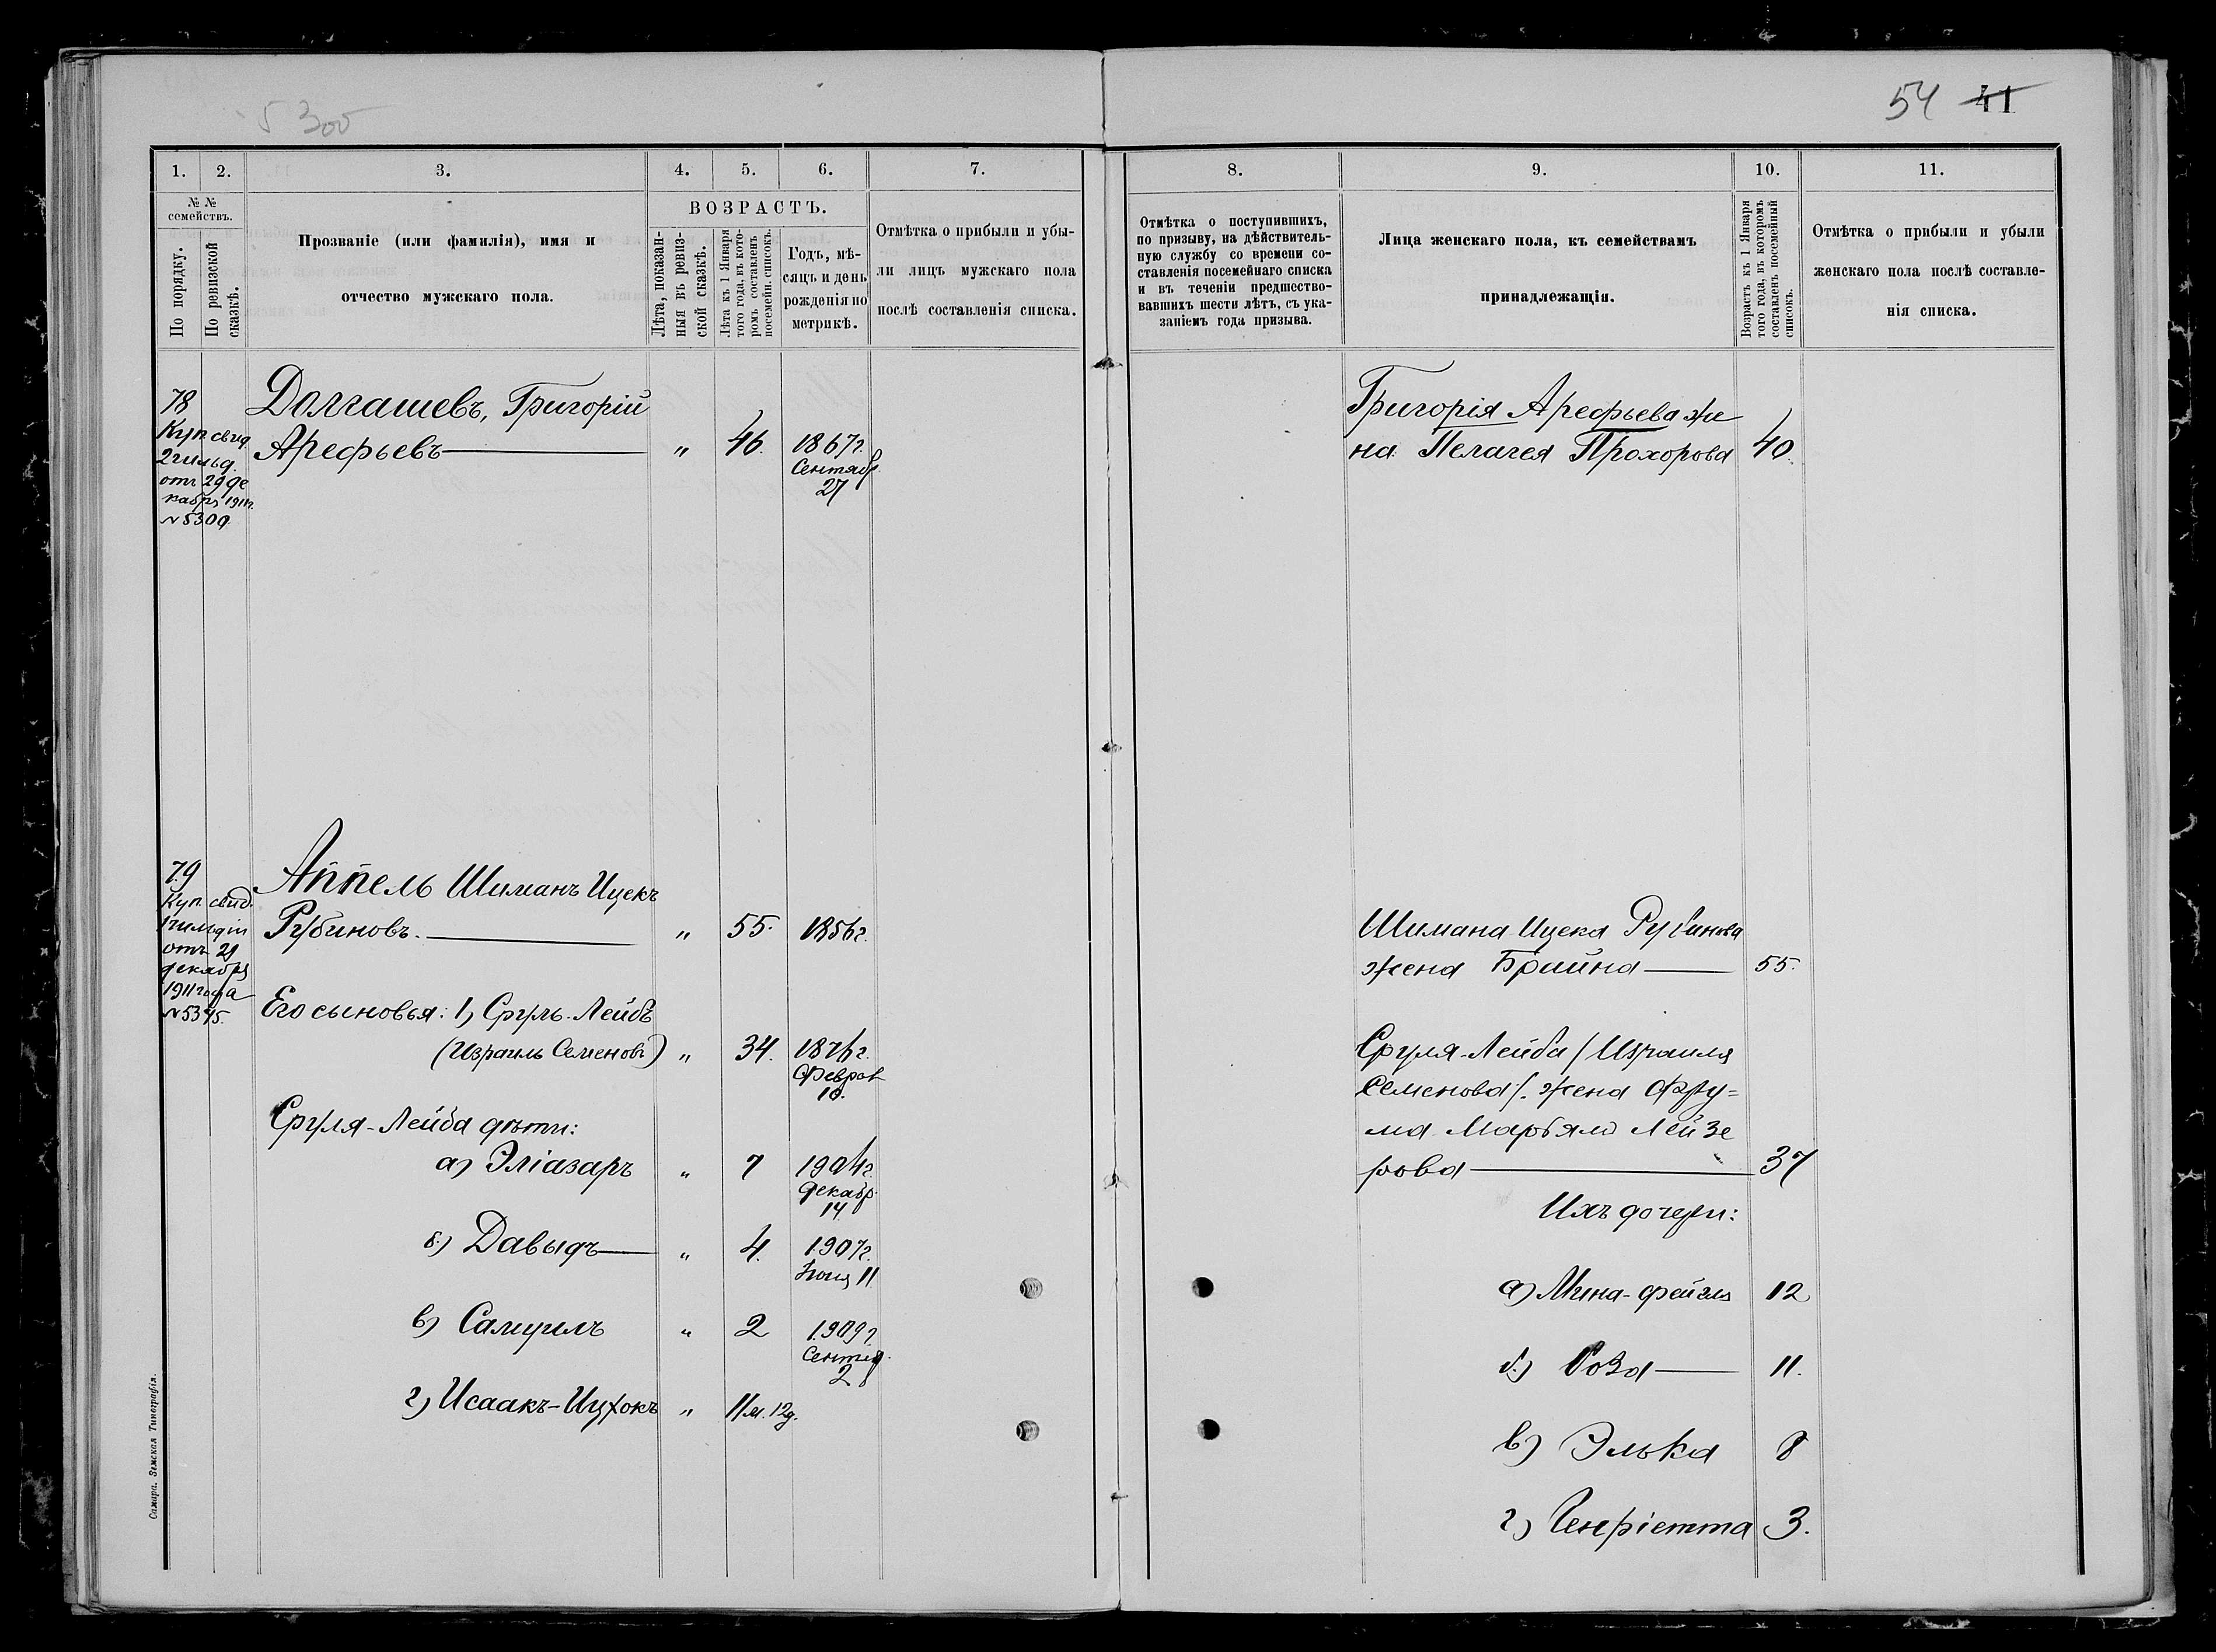 5300
54 41
1.
2.
3.
4.
5.
6.
7.
№ №
семействъ.
По порядку.
По ревизской
сказкѣ.
Прозваніе (или фамилія), имя и
отчество мужскаго пола.
ВОЗРАСТЪ.
Лѣта, показан-
ныя въ ревиз-
ской сказкѣ.
Лѣта къ 1 Января
того года, въ кото-
ромъ составленъ
посемейн. списокъ.
Годъ, мѣ-
сяцъ и день
рожденія по
метрикѣ.
Отмѣтка о прибыли и убы-
ли лицъ мужскаго пола
послѣ составленія списка.
78
Куп. свид.
2 гильд.
отъ 29 де
кабря 1911 г.
№ 5309
Долгашевъ, Григорій
Арефьевъ " 46. 1867 г.
Сентябр.
27
79
Куп. свид.
1 гильдіи
отъ 29
декабря
1911 года
№ 5345.
Аппель Шиманъ Ицекъ
Рубиновъ. " 55. 1856 г.
Его сыновья: 1) Сруль-Лейбъ
(Израиль Семеновъ) " 34. 1876 г.
Феврал
10.
Сруля-Лейба дѣти:
а) Эліазаръ " 7 1904 г.
Декабр.
14
б) Давыдъ " 4. 1907 г.
Іюня 11
в) Самуилъ " 2 1909 г.
Сентяб.
2
г) Исаакъ-Ицхокъ " 11 м. 12 д.
Самара. Земская Типографія.
8.
9.
10.
11.
Отмѣтка о поступившихъ,
по призыву, на дѣйствитель-
ную службу со времени со-
ставленія посемейнаго списка
и въ теченіи предшество-
вавшихъ шести лѣтъ, съ ука-
заніемъ года призыва.
Лица женскаго пола, къ семействамъ
принадлежащія.
Возрастъ къ 1 Января
того года, въ которомъ
составленъ посемейный
списокъ.
Отмѣтка о прибыли и убыли
женскаго пола послѣ составле-
нія списка.
Григорія Арефьева же
на Пелагея Прохорова 40.
Шимана Ицека Рубинова
жена Брайна 55.
Сруля-Лейба (Израиля
Семенова). жена Фру=
ма Марьям Лейзе
рова 37
Ихъ дочери:
а) Мина-Фейгля 12
б) Роза 11.
в) Элька 8
г) Генріетта 3.